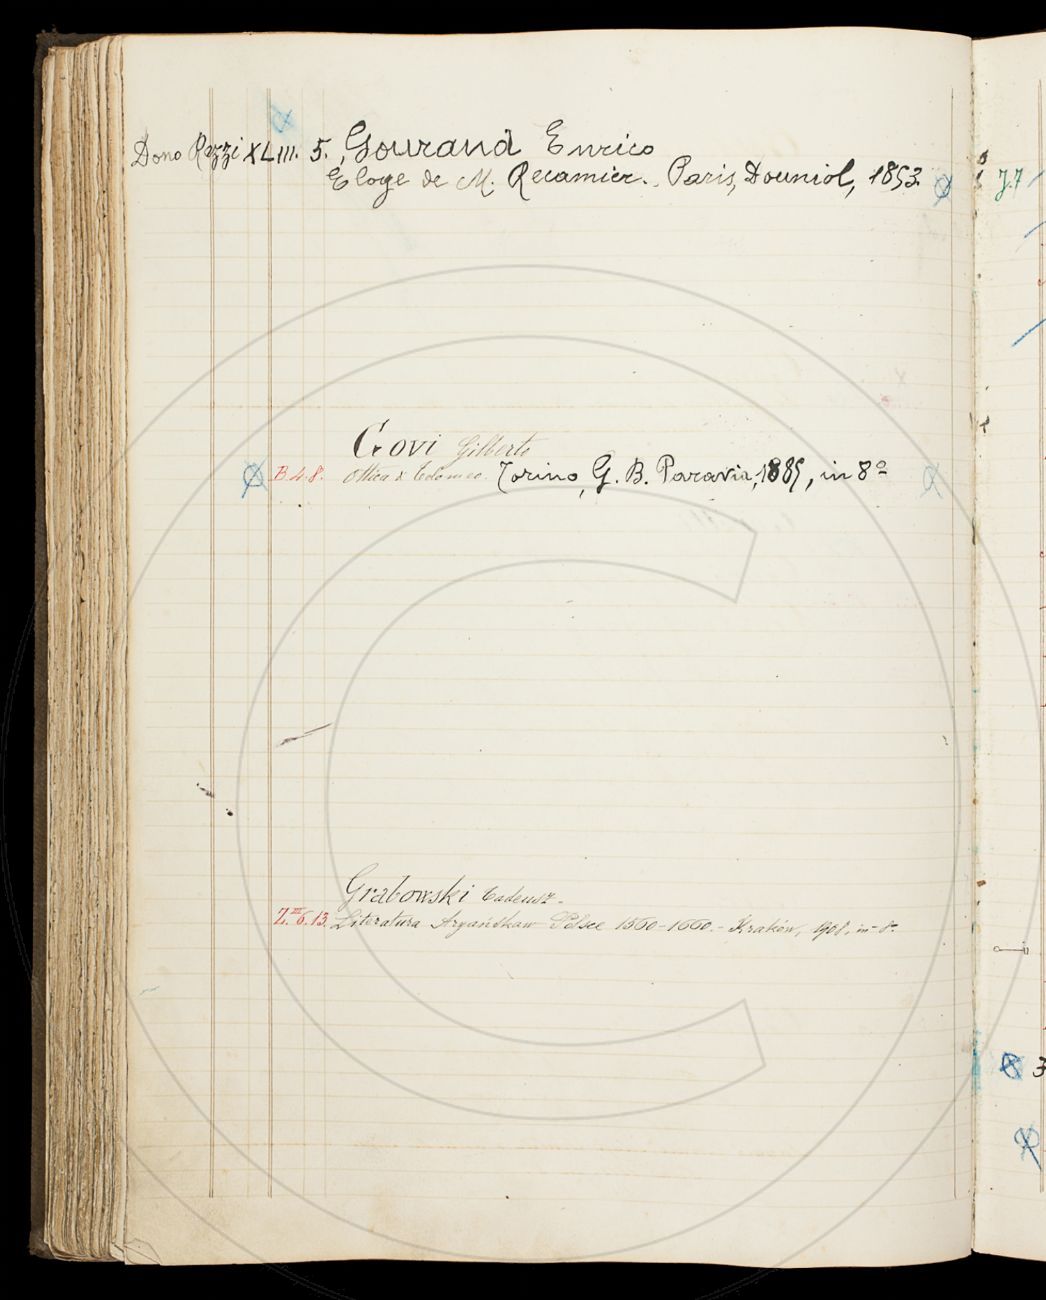 Dono Razzi XLIII. 5. Gourand Enrico
Eloge de M. Recamier. Paris, Douniol, 1853
J.7
Govi Gilberto
B.4.8. Ottica di Tolomeo. Torino, G. B. Paravia, 1885, in 8º
Grabowski Tadeusz.
Z.III.6.13. Literatura Aryańska w Polsce 1560-1660.- Kraków, 1908. in-8º.
3